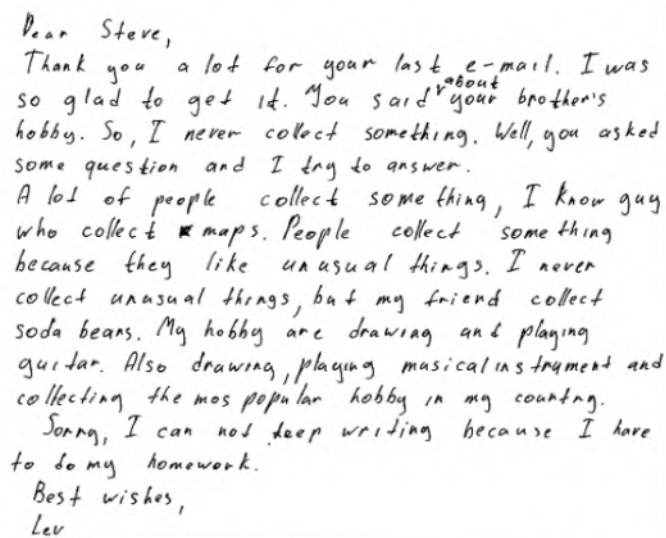 Dear Steve,
Thank you a lot for your last e-mail. I was
so glad to get it. You said about your brother's
hobby. So, I never collect something. Well, you asked
some question and I try to answer.
A lot of people collect something, I know guy
who collect maps. People collect something
because they like unusual things. I never
collect unusual things, but my friend collect
soda beans. My hobby are drawing and playing
guitar. Also drawing, playing musical instrument and
collecting the mos popular hobby in my country.
Sorry, I can not keep writing because I have
to do my homework.
Best wishes,
Lev